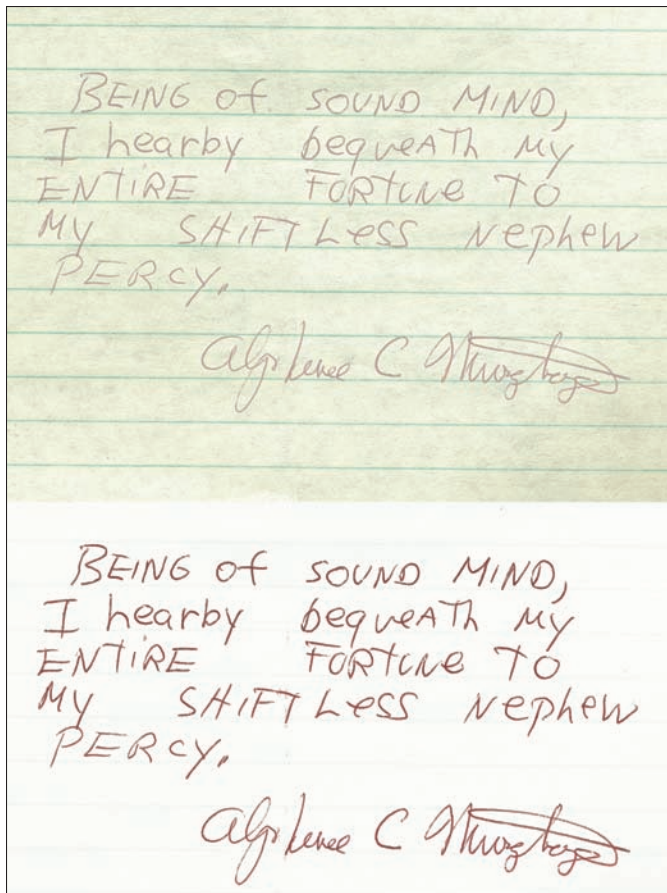 BEING of SOUND MIND,
I hearby bequeATh My
ENTiRE FORTUNe TO
My SHiFTLess Nephew
PERCY.
C
BEING of SOUND MIND,
I hearby bequeATh My
ENTiRE FORTUNe TO
My SHiFTLess Nephew
PERCY.
C